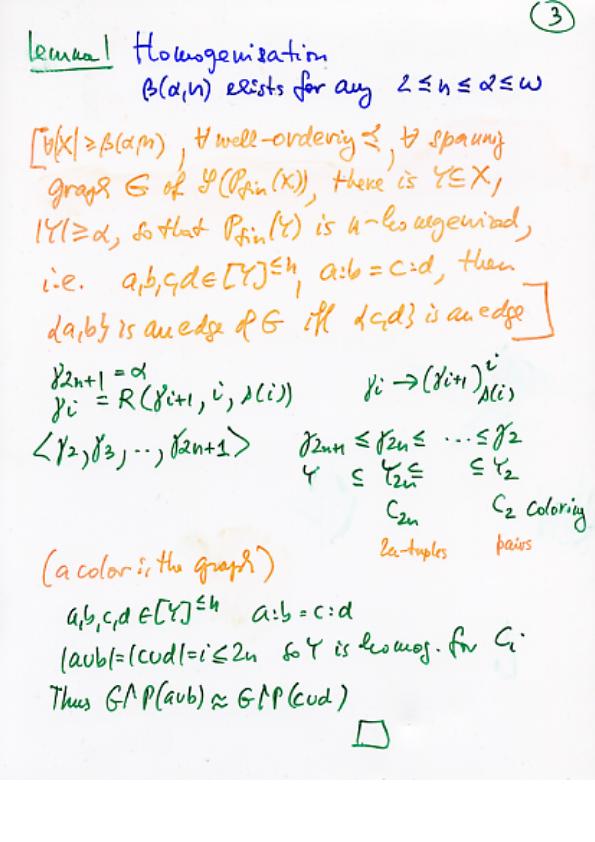 3
Lemma 1 Homogenisation
β(α,n) exists for any 2 ≤ n ≤ α ≤ ω
[∀|X| ≥ β(α,n), ∀ well-ordering ≼, ∀ spanning
graph G of 𝒮(P_fin(X)), there is Y⊆X,
|Y| ≥ α, so that P_fin(Y) is n-homogenized,
i.e. a,b,c,d ∈ [Y]^≤n, a:b = c:d, then
{a,b} is an edge of G iff {c,d} is an edge]
γ_2n+1 = α
γ_i = R(γ_i+1, i, s(i)) γ_i → (γ_i+1)^i_s(i)
<γ_2, γ_3, .., γ_2n+1> γ_2n+1 ≤ γ_2n ≤ ... ≤ γ_2
Y ⊆ Y_2n ⊆ ⊆ Y_2
C_2n C_2 coloring
2n-tuples pairs
(a color is the graph)
a,b,c,d ∈ [Y]^≤n a:b = c:d
|a∪b| = |c∪d| = i ≤ 2n so Y is homog. for C_i.
Thus G↾P(a∪b) ≈ G↾P(c∪d)
□